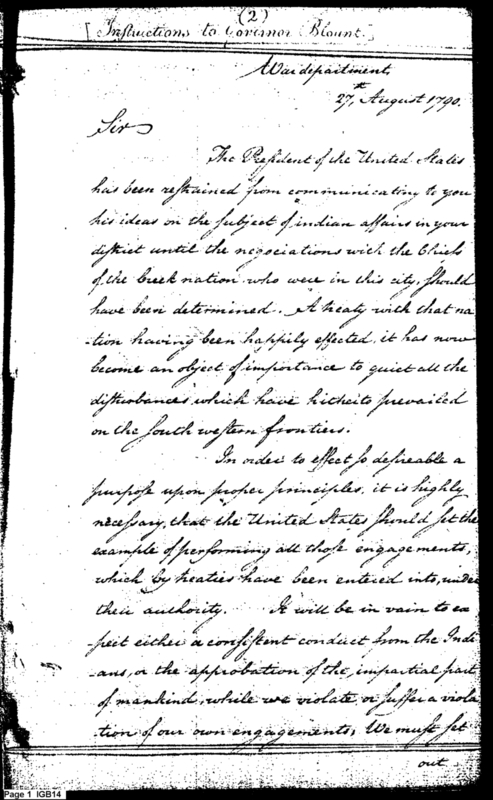 (2)
[Instructions to Governor Blount.]
War department,
27th, August 1790.
Sir
The President of the United States
has been restrained from communicating to you
his ideas on the subject of indian affairs in your
district until the negociations with the Chiefs
of the Creek nation who were in this city, should
have been determined. A treaty with that na
-tion having been happily effected, it has now
become an object of importance to quiet all the
disturbances, which have hitherto prevailed
on the South western frontiers.
In order to effect so desireable a
purpose upon proper principles, it is highly
necessary, that the United States should set the
example of performing all those engagements,
which by treaties have been entered into, under
their authority. It will be in vain to ex
pect either a consistent conduct from the Indi
-ans, or the approbation of the impartial part
of mankind, while we violate or suffer a viola
-tion of our own engagements, We must set
out
Page 1 IGB14